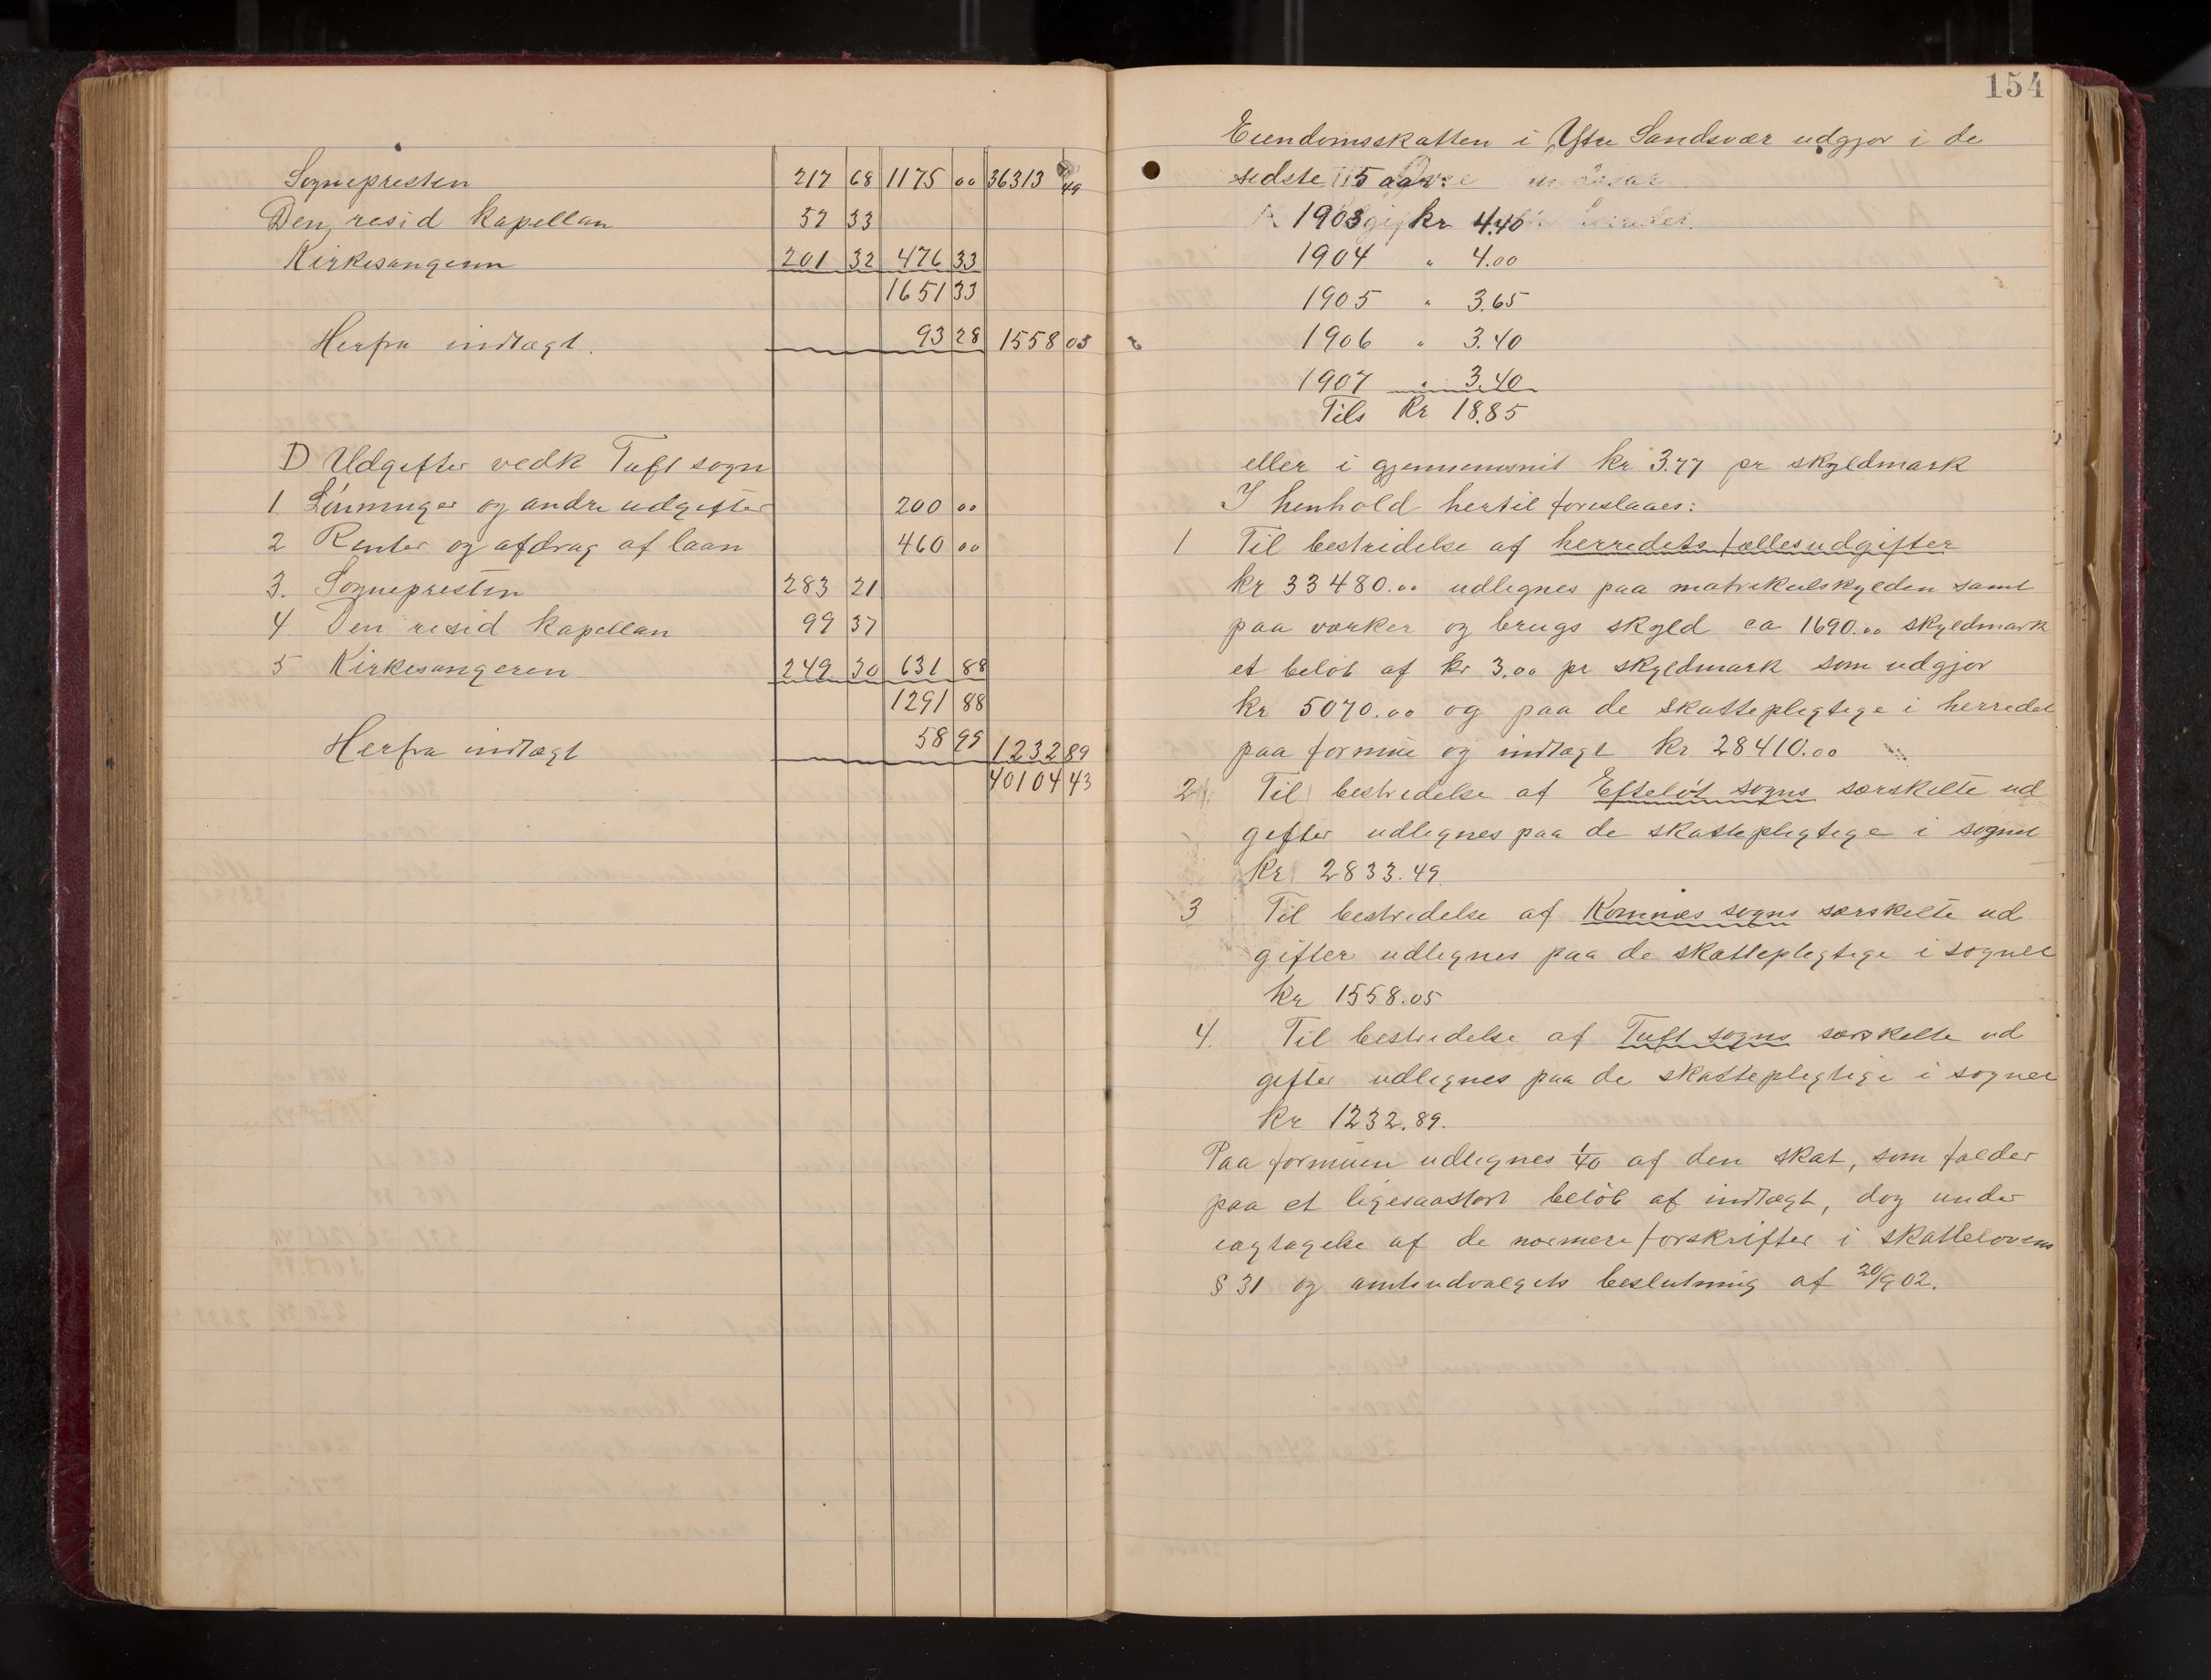 Sognepresten 217 68 1175 00 36313 49
Den resid kapellan 57 33
Kirkesangeren 201 32 476 33
1651 33
Herfra indtægt. 93 28 1558 05
D Udgifter vedk Tuft sogn
1 Lønninger og andre udgifter 200 00
2 Renter og afdrag af laan 460 00
3. Sognepresten 283 21
4 Den resid kapellan 99 37
5 Kirkesangeren 249 30 631 88
1291 88
Herfra indtægt 58 99 1232 89
40104 43
154
Eiendomsskatten i Ytre Sandsvær udgjør i de
sidste 5 aar:
1903 kr 4.40
1904 " 4.00
1905 " 3.65
1906 " 3.40
1907 " 3.40
Tils kr 18.85
eller i gjennemsnit kr 3.77 pr skyldmark
I henhold hertil foreslaaes:
1 Til bestridelse af herredets fællesudgifter
kr 33480.00 udlignes paa matrikulskylden samt
paa værker og brugs skyld ca 1690.00 skyldmark
et beløb af kr 3.00 pr skyldmark som udgjør
kr 5070.00 og paa de skattepligtige i herredet
paa formue og indtægt kr 28410.00
2 Til bestridelse af Efteløt sogns særskilte ud
gifter udlignes paa de skattepligtige i sognet
kr 2833.49
3 Til bestridelse af Komnæs sogns særskilte ud
gifter udlignes paa de skattepligtige i sognet
kr 1558.05
4. Til bestridelse af Tuft sogns særskilte ud
gifter udlignes paa de skattepligtige i sognet
kr 1232.89.
Paa formuen udlignes 1/40 af den skat, som falder
paa et ligesaastort beløb af indtægt, dog under
iagtagelse af de nærmere forskrifter i skattelovens
§ 31 og amtsudvalgets beslutning af 20/9 02.